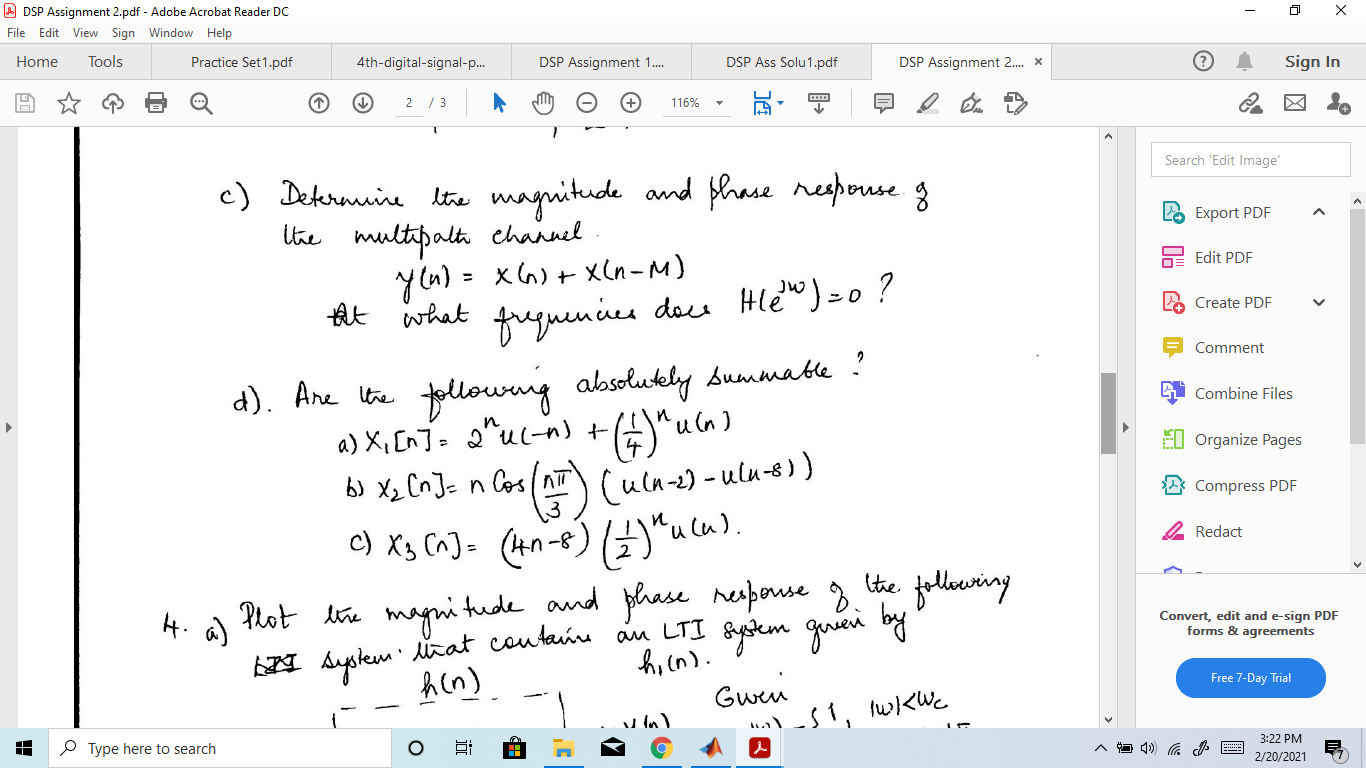 DSP Assignment 2.pdf - Adobe Acrobat Reader DC
File Edit View Sign Window Help
Home Tools Practice Set1.pdf 4th-digital-signal-p... DSP Assignment 1.... DSP Ass Solu1.pdf DSP Assignment 2.... × Sign In
2 / 3 116%
c) Determine the magnitude and phase response of
the multipath channel.
y(n) = x(n) + x(n-M)
At what frequencies does H(e^jw) = 0 ?
d). Are the following absolutely summable ?
a) x₁[n] = 2^n u(-n) + (1/4)^n u(n)
b) x₂[n] = n Cos(nπ/3) (u(n-2) - u(n-8))
c) x₃[n] = (4n-8) (1/2)^n u(n).
4. a) Plot the magnitude and phase response of the following
system that contains an LTI system given by
h(n) h₁(n).
Given
, |w|<wc
Search 'Edit Image'
Export PDF
Edit PDF
Create PDF
Comment
Combine Files
Organize Pages
Compress PDF
Redact
Convert, edit and e-sign PDF
forms & agreements
Free 7-Day Trial
Type here to search
3:22 PM
2/20/2021
7